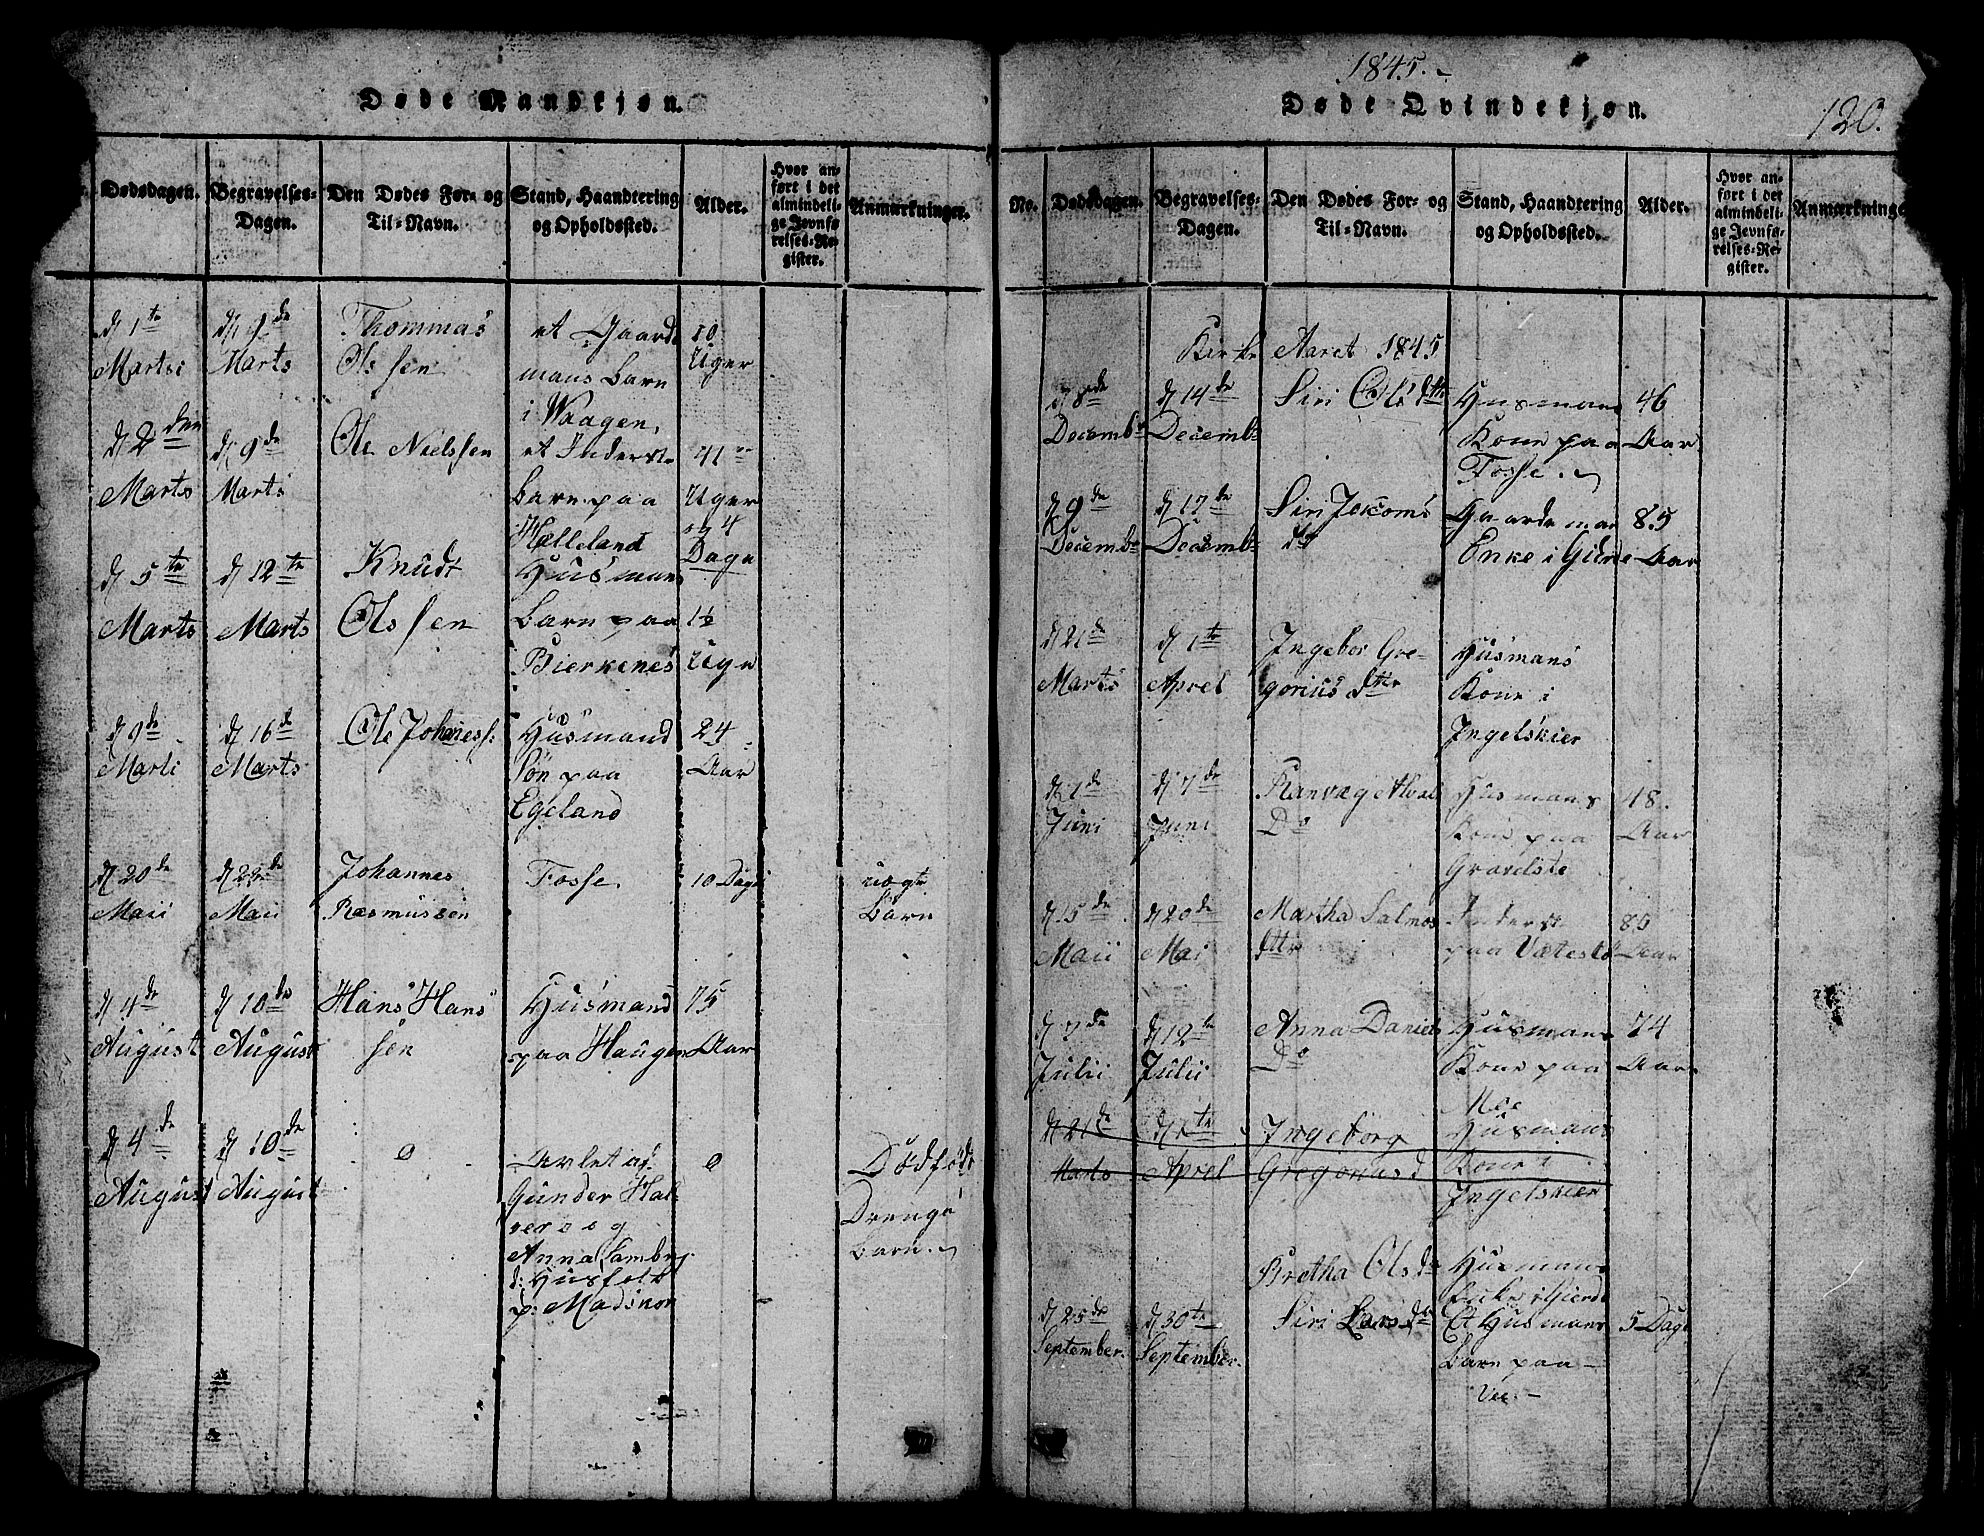 Døde Mandkjøn.
Dødsdagen.
Begravelses-
Dagen.
Den Dødes For- og
Til-Navn.
Stand, Haandtering
og Opholdssted.
Alder.
Hvor an-
ført i det
almindeli-
ge Jevnfø-
relses-Re-
gister.
Anmærkninger.
d 1te
Martsi
d 9de
Marts
Thommas
Olssen
et Gaard
mans Barn
i Waagen,
10
Uger
d 2den
Marts
d 9de
Marts
Ole Nielssen
et Inderst
Barn paa
Helleland
41
Uger
og 4
Dage
d 5te
Marts
d 12te
Marts
Knudt
Olssen
Husmans
Barn paa
Bierkenes
1½
Uger
d 9de
Marti
d 16de
Marts
Ole Johaness:
Husmand
Søn paa
Egeland
24
Aar
d 20de
Maii
d 22de
Maii
Johannes
Rasmussen
Fosse
10 Dage
uægte
Barn
d 4de
August
d 10de
August
Hans Hans
sen
Husmand
paa Haugen
75
Aar
d 4de
August
d 10de
August
0
Avlet af
Gunder Hal
vers og
Anna Lambr
d: Husfolk
p: Madskor
0
Dödföd
Drenge
Barn.
1845.
Døde Qvindekjøn.
120.
No.
Dødsdagen.
Begravelses-
Dagen.
Den Dødes For- og
Til-Navn.
Stand, Haandtering
og Opholdssted.
Alder.
Hvor an-
ført i det
almindeli-
ge Jevnfø-
relses-Re-
gister.
Anmærkninge
Kirke Aaret 1845
d 8de
Decembr
d 14de
Decembr
Siri Olsdttr
Husmans
Kone paa
Fosse.
46
Aar
d 9de
Decembr
d 17de
Decembr
Siri
Gaardman
Enke i
85
Aar
d 21de
Marts
d 1te
Aprel
Ingebor Gre-
gorius dttr
Husmans
Kone i
Ingelskier
d 1de
Juni
d 7de
Juni
Ranvæg
Do
Husmans
Kone paa
48.
Aar
d 15de
Maii
d 20de
Mai
Martha Salmos
dttr
Inderst
paa
85
Aar
d 7de
Julii
d 12te
Julii
Anna Daniels
Do
Husmans
Kone paa
74
Aar
d 21de
Marts
d 1te
Aprel
Ingeborg
Gregorius d
Husmans
Kone i
Ingelskier
Bretha Olsdr
Husmans
Enke i Gierde
d 25de
September.
d 30te
September.
Siri Larsdtr
Et Husmans
Barn paa
Vee.
5 Dage